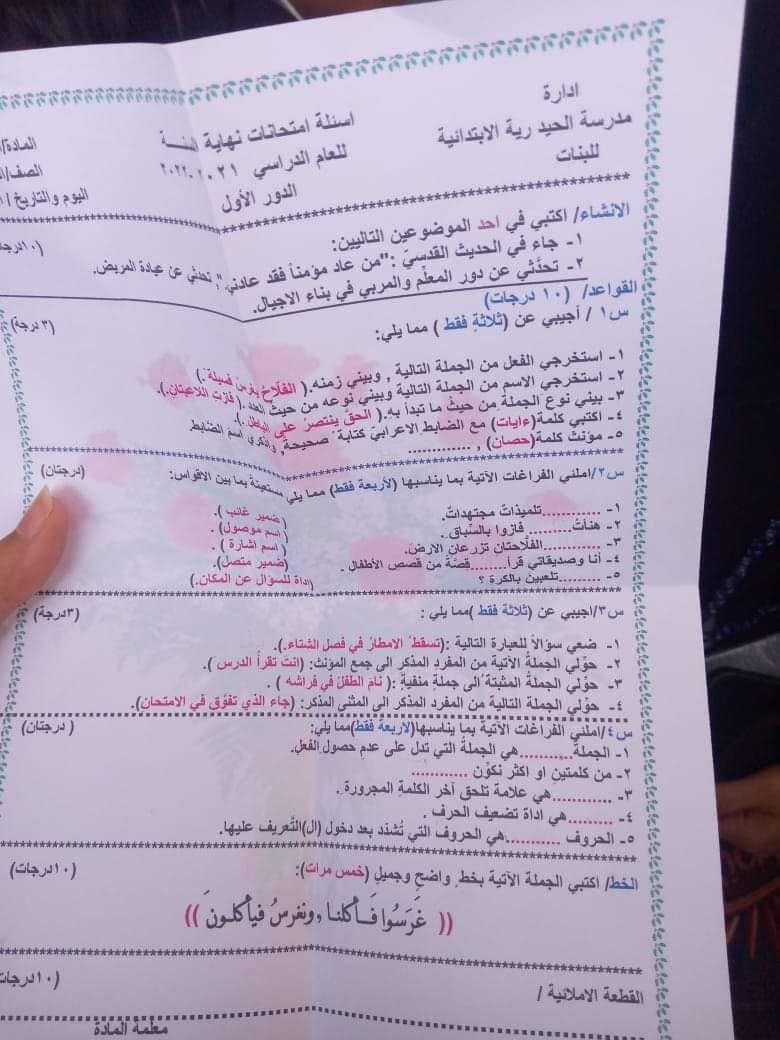 ادارة
مدرسة الحيدرية الابتدائية
للبنات
اسئلة امتحانات نهاية السنة
للعام الدراسي ٢٠٢١-٢٠٢٢
الدور الأول
المادة/
الصف/
اليوم والتاريخ /
الانشاء/ اكتبي في احد الموضوعين التاليين: (١٠درجة
١- جاء في الحديث القدسيّ :"من عاد مؤمناً فقد عادني", تحدّثي عن عيادة المريض.
٢- تحدَّثي عن دور المعلّم والمربي في بناء الاجيال.
القواعد/ (١٠ درجات)
س١ / أجيبي عن (ثلاثةٍ فقط ) مما يلي: (٣ درجة)
١- استخرجي الفعل من الجملة التالية , وبيني زمنه.( الفلّاحُ يغرسُ فسيلةً.)
٢- استخرجي الاسم من الجملة التالية وبيني نوعه من حيث العدد .( فازت اللاعبتان.).
٣- بيني نوع الجملة من حيثُ ما تبدأ به.( الحقُّ ينتصرُ على الباطل ).
٤- اكتبي كلمة(ءايات) مع الضابط الاعرابيّ كتابة صحيحة, واذكري اسم الضابط.
٥- مؤنث كلمة(حصان) , .............
س٢/املئي الفراغات الآتية بما يناسبها (لأربعة فقط) مما يلي مستعينةً بما بين الاقواس: (درجتان)
١- ............تلميذاتٌ مجتهداتٌ. ( ضمير غائب ).
٢- هنأتُ.........فازوا بالسّباق. (اسم موصول) .
٣- ............الفلّاحتانِ تزرعانِ الارضَ. ( اسم اشارة ) .
٤- أنا وصديقاتي قرأ.......قصّةً من قصص الأطفال . (ضمير متصل).
٥- .........تلعبين بالكرة ؟ (اداة للسؤال عن المكان.)
س٣/اجيبي عن (ثلاثة فقط )مما يلي : (٣درجة)
١- ضعي سؤالاً للعبارة التالية :(تسقطُ الامطارُ في فصل الشتاء.).
٢- حوّلي الجملة الآتية من المفرد المذكر الى جمع المؤنث: (انتَ تقرأُ الدرسَ ).
٣- حوّلي الجملةُ المثبتةُ الى جملةٍ منفيةٍ :( نامَ الطفلُ في فراشه ) .
٤- حوّلي الجملة التالية من المفرد المذكر الى المثنى المذكر: (جاء الذي تفوّق في الامتحان).
س٤/املئي الفراغات الآتية بما يناسبها(لأربعة فقط)مما يلي: ( درجتان)
١- الجملةُ..........هي الجملةُ التي تدل على عدم حصول الفعل.
٢- من كلمتين او اكثر نكوّن ...........
٣- ............هي علامة تلحق آخر الكلمة المجرورة .
٤- .........هي اداة تضعيف الحرف .
٥- الحروف ..........هي الحروف التي تُشدّد بعد دخول (ال)التّعريف عليها.
الخط/ اكتبي الجملة الآتية بخط واضح وجميل (خمس مرات): (١٠درجات)
(( غَرَسُوا فَأكلنا ,ونغرسُ فيأكلونَ ))
القطعة الاملائية / (١٠درجات
معلمة المادة